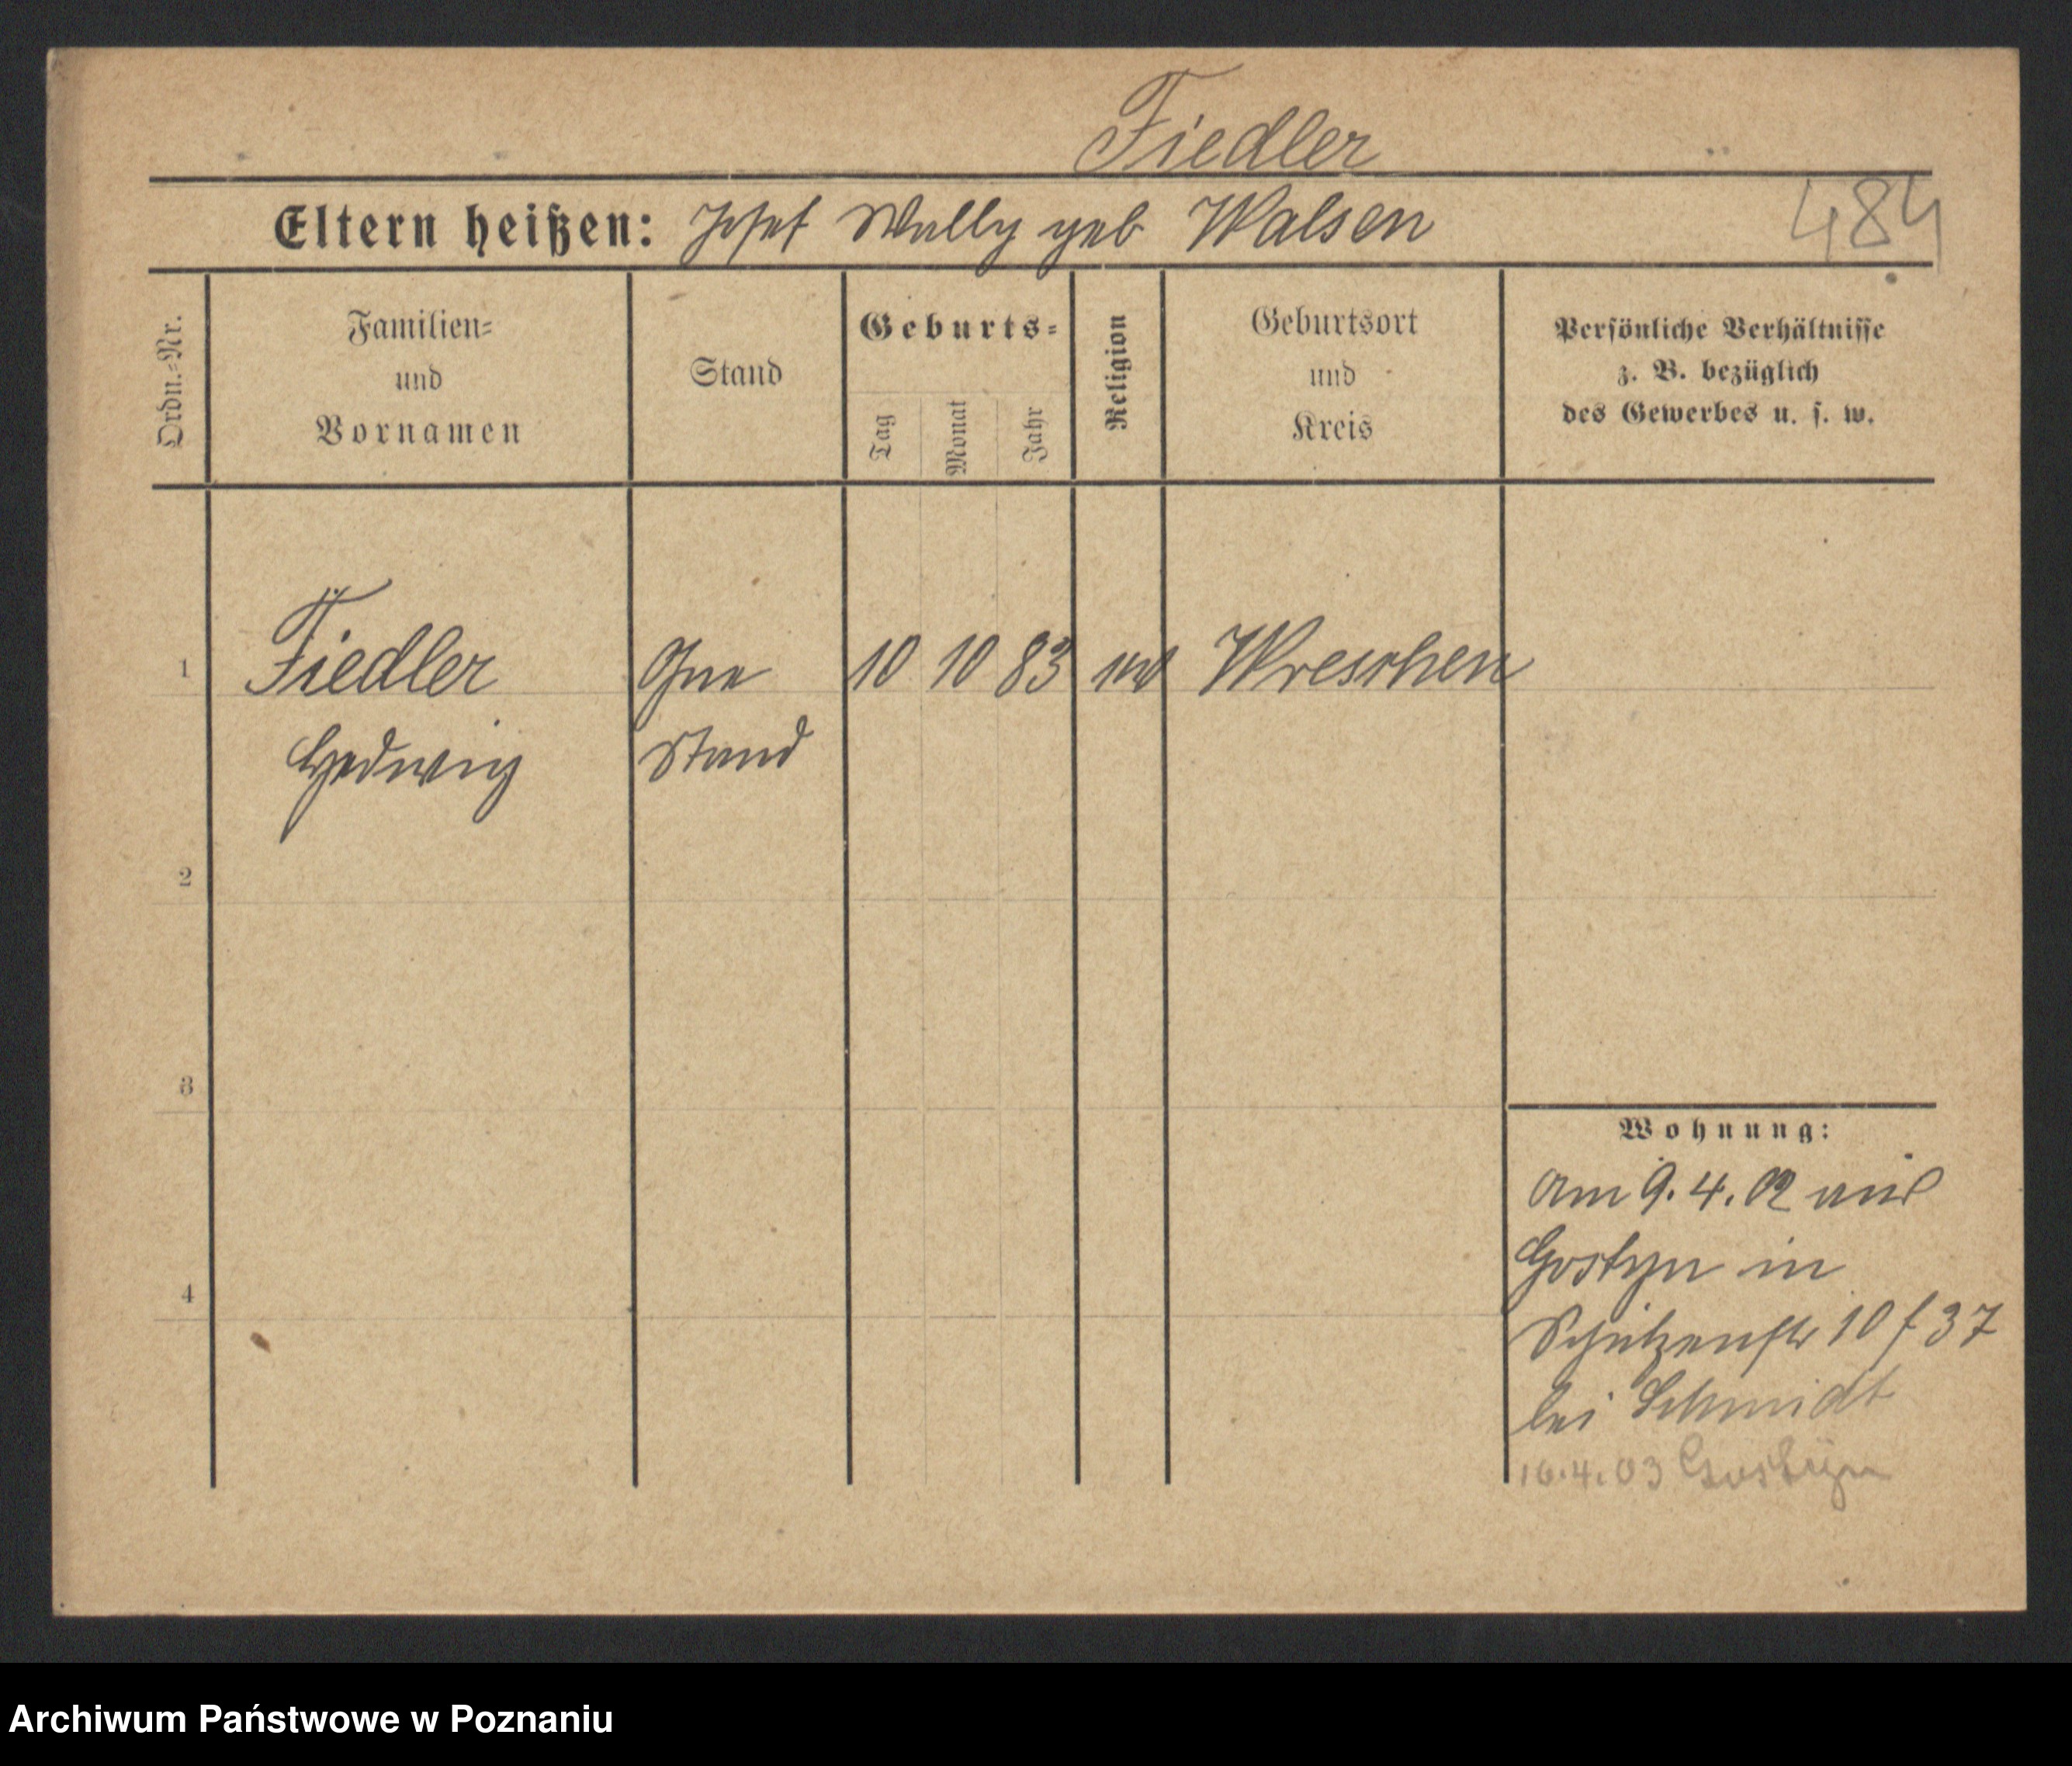 Fiedler
Eltern heißen: Josef Wally geb Walsen
484
Ordn.-Nr.
Familien-
und
Vornamen
Stand
Geburts-
Tag
Monat
Jahr
Religion
Geburtsort
und
Kreis
Persönliche Verhältnisse
z. B. bezüglich
des Gewerbes u. s. w.
1 Fiedler Ohne 10 10 83 Wreschen
Hedwig Stand
2
3
4
Wohnung:
Am 9.4.02 aus
Gostyn in
Schützenstr 10 f 37
bei Schmidt
16.4.03 Gostyn
Archiwum Państwowe w Poznaniu